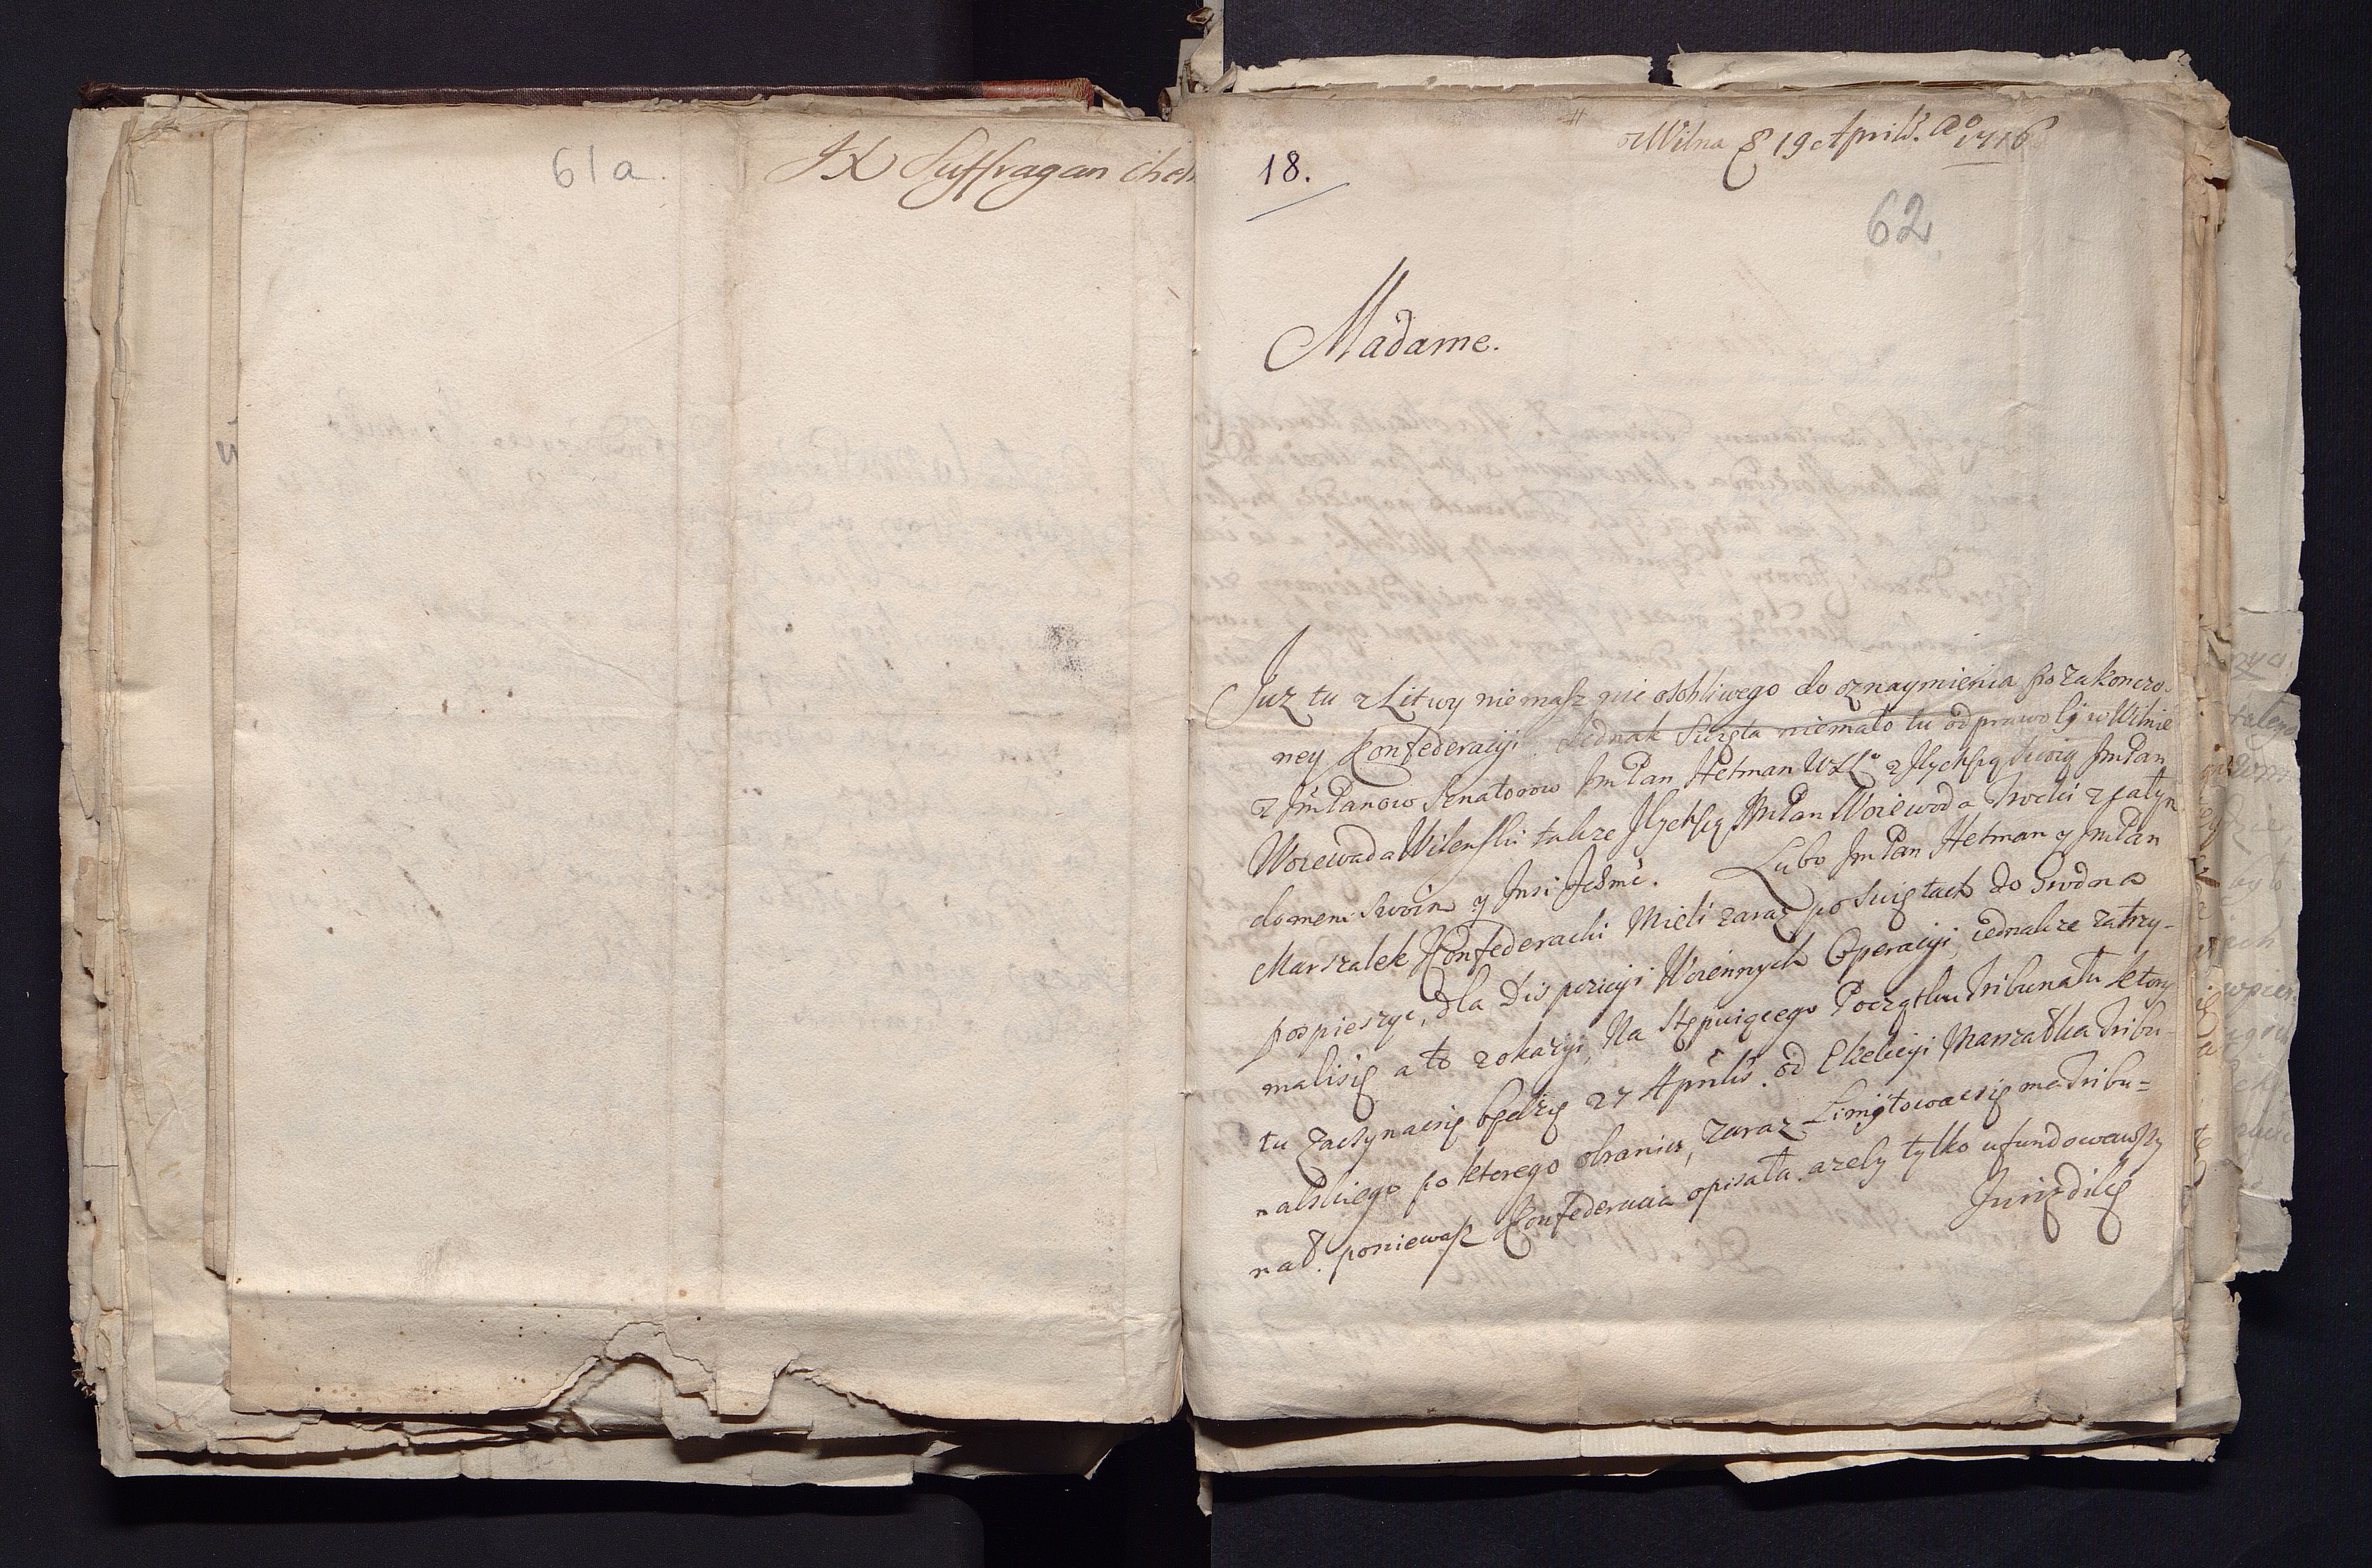 61a
JX Suffragan Cheł
18.
z Wilna 19 Aprilis. Ao 1716
62
Madame.
Juz tu z Litwy niemasz nic osobliwego do oznaymienia po zakonczo-
ney Konfederacyi. Jednak Swięta niemało tu odprawoło w Wilnie
z JmPanow Senatorow JmPan Hetman WXLo z JMcką swoią JmPan
Woiewoda Wilenski takze JMcką JmPan Woiewoda Trocki z całym
domem swoim y Insi Ichmć. Lubo JmPan Hetman y JmPan
Marszałek Konfederacki mieli zaraz po Swiętach do Grodna
pospieszyc, dla Dispozicyi Woiennych Operacyi, iednakze zatrzy-
malisię a to z okazyi, Następuiącego Początku Tribunału ktory
tu zaczynacsię będzie 27 Aprilis. od Elekcyi Marszałka Tribu-
nalskiego po ktorego obraniu, zaraz Limitowacsię ma Tribu=
nał. poniewasz Konfederacia opisała. azeby tylko ufundowawszy
Jurizdikcę